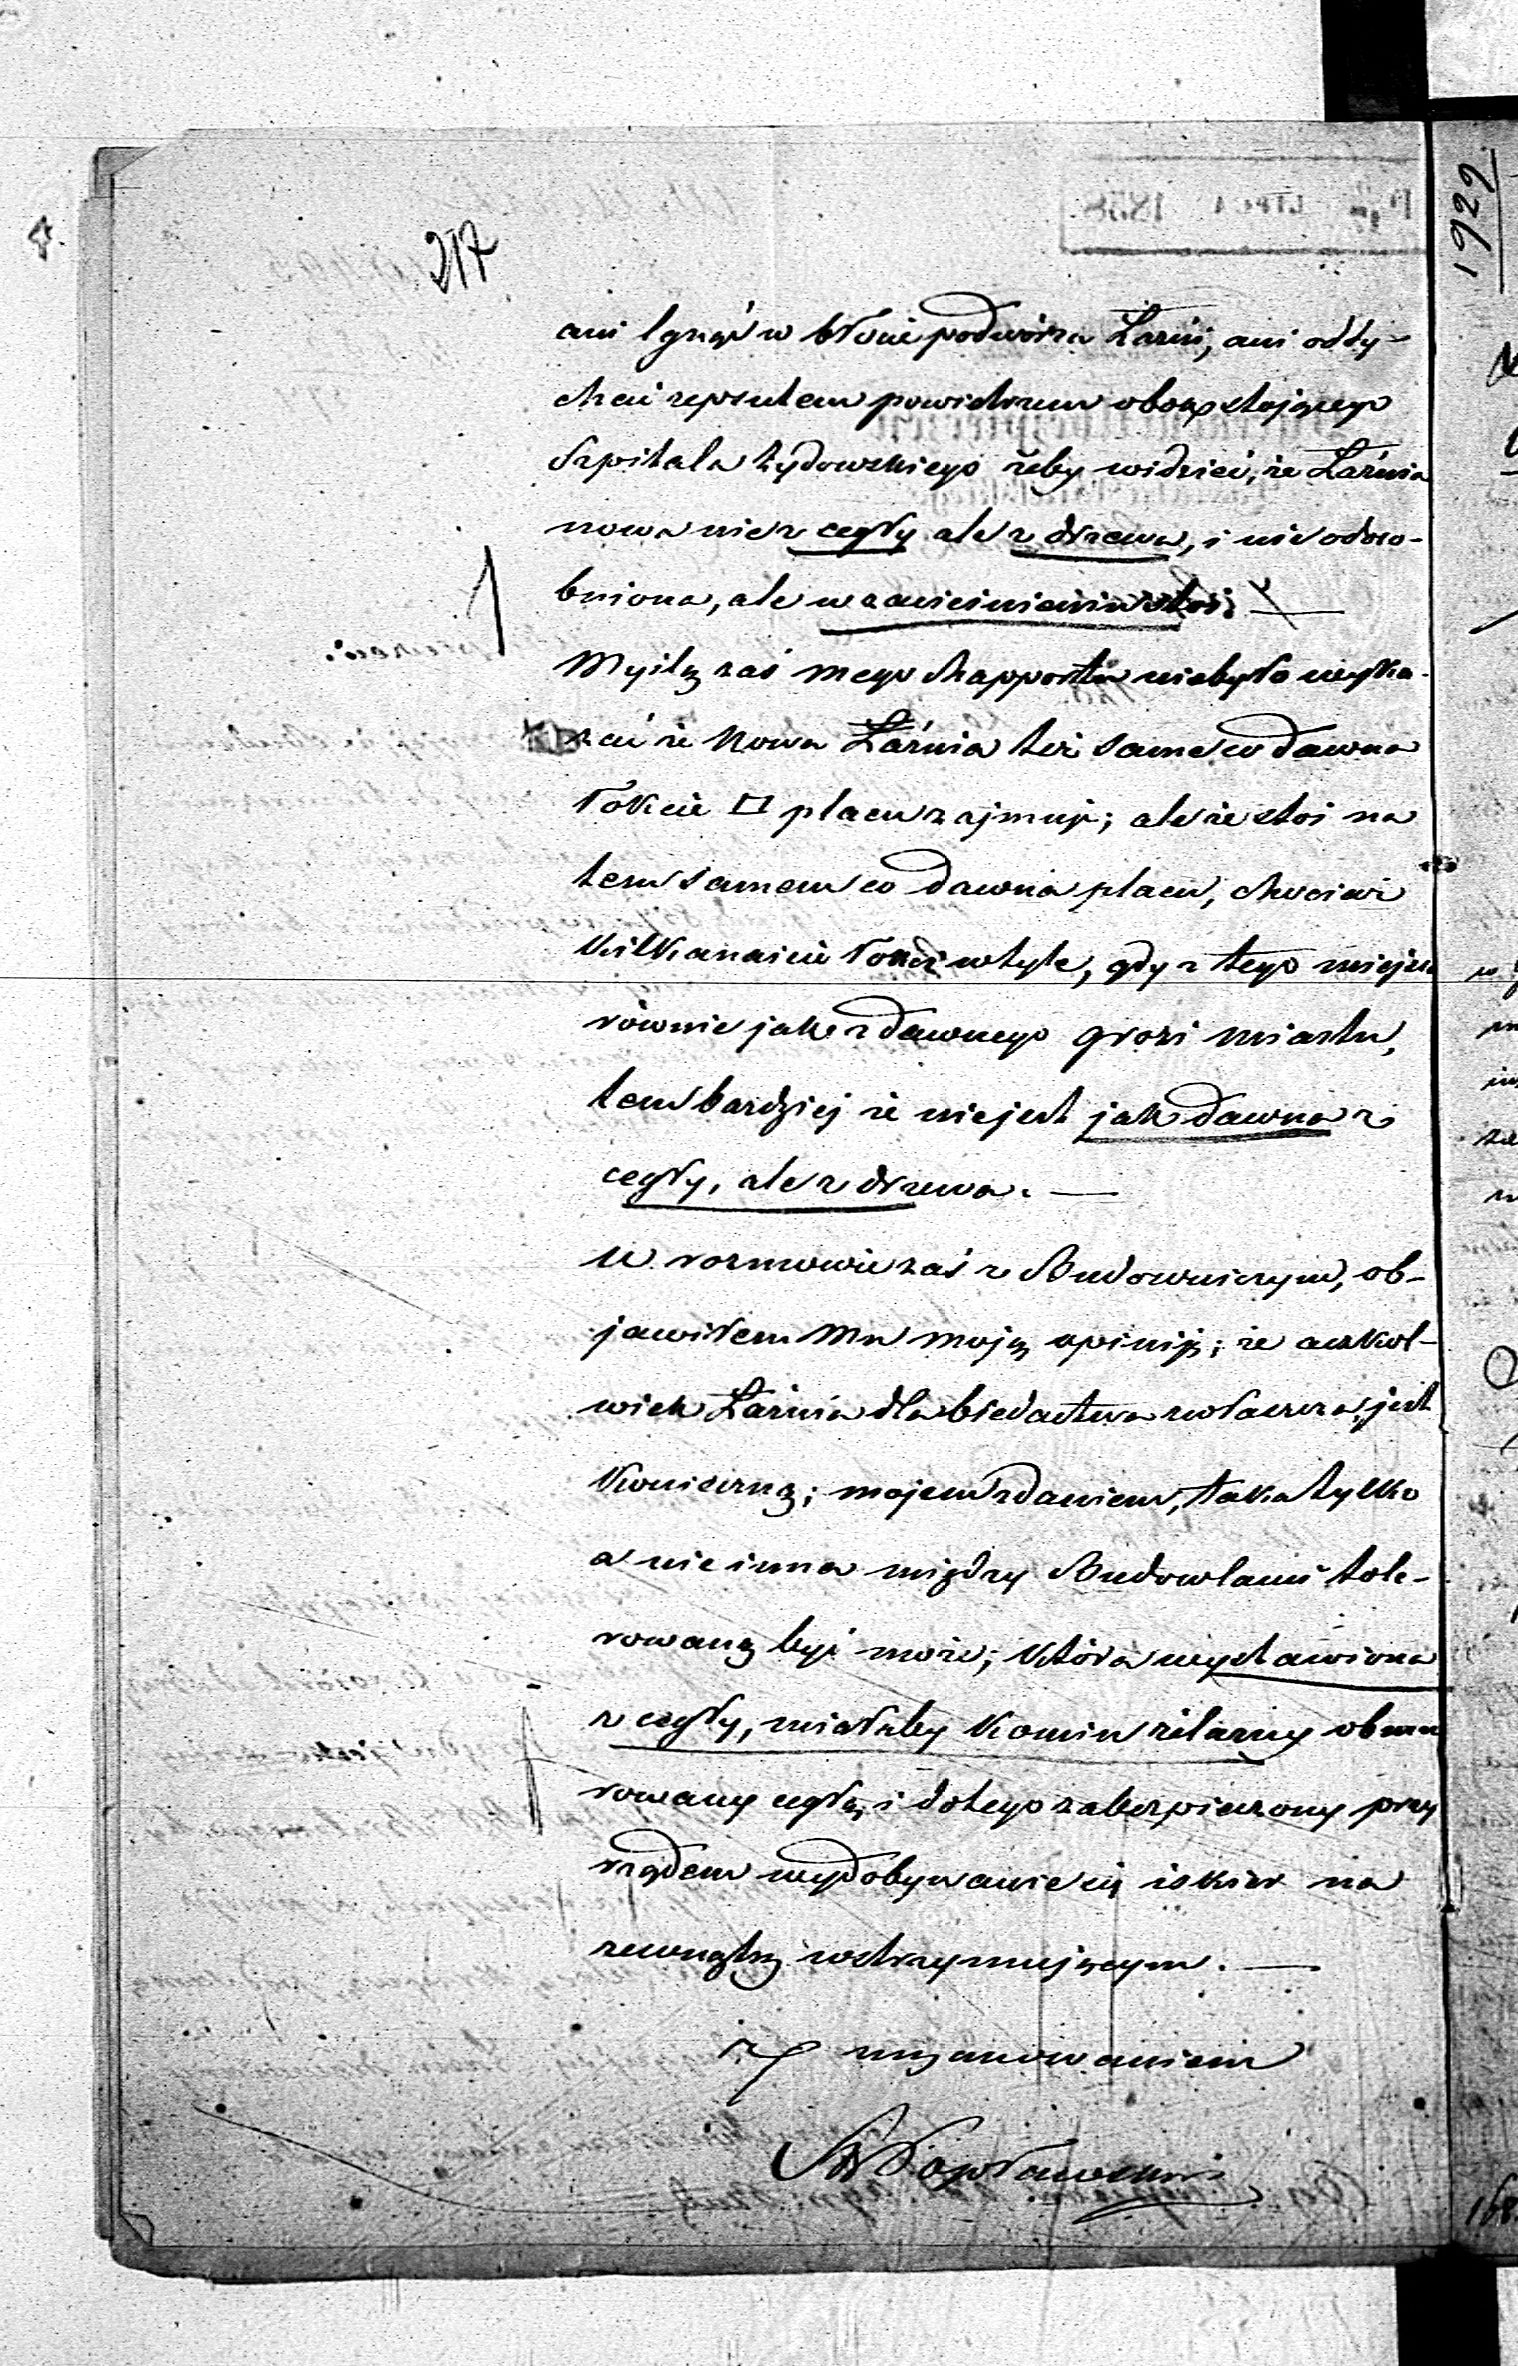 217
1922
ani lgnąć w błocie podwórza Łaźni, ani oddy-
chać zepsutem powietrzem obok stojącego
Szpitala Żydowskiego żeby widzieć, że Łaźnia
nowa nie z cegły ale z drzewa, i nie odoso-
bniona, ale w zacieśnieniu stoi.
Myślą zaś mego Rapportu niebyło wyka-
zać że Nowa Łaźnia też same co dawna
łokcie □ placu zajmuje; ale że stoi na
tem samem co dawna placu, chociaż
kilkanaście łokci wtyle, gdy z tego miejsca
równie jak z dawnego grozi miastu,
tembardziej że niejest jak dawna z
cegły, ale z drzewa. —
W rozmowie zaś z Budowniczym, ob-
jawiłem Mu moją opiniję; że aczkol-
wiek Łaźnia dla biedactwa zwłaszcza, jest
konieczną; mojem zdaniem, taka tylko
a nie inna między Budowlami tole-
rowaną być może; która wystawiona
z cegły, miałaby komin żelazny obmu
rowany cegłą, i do tego zabezpieczony przy
rządem wydobywanie się iskier na
zewnątrz wstrzymującym. —
Z uszanowaniem
Popławski